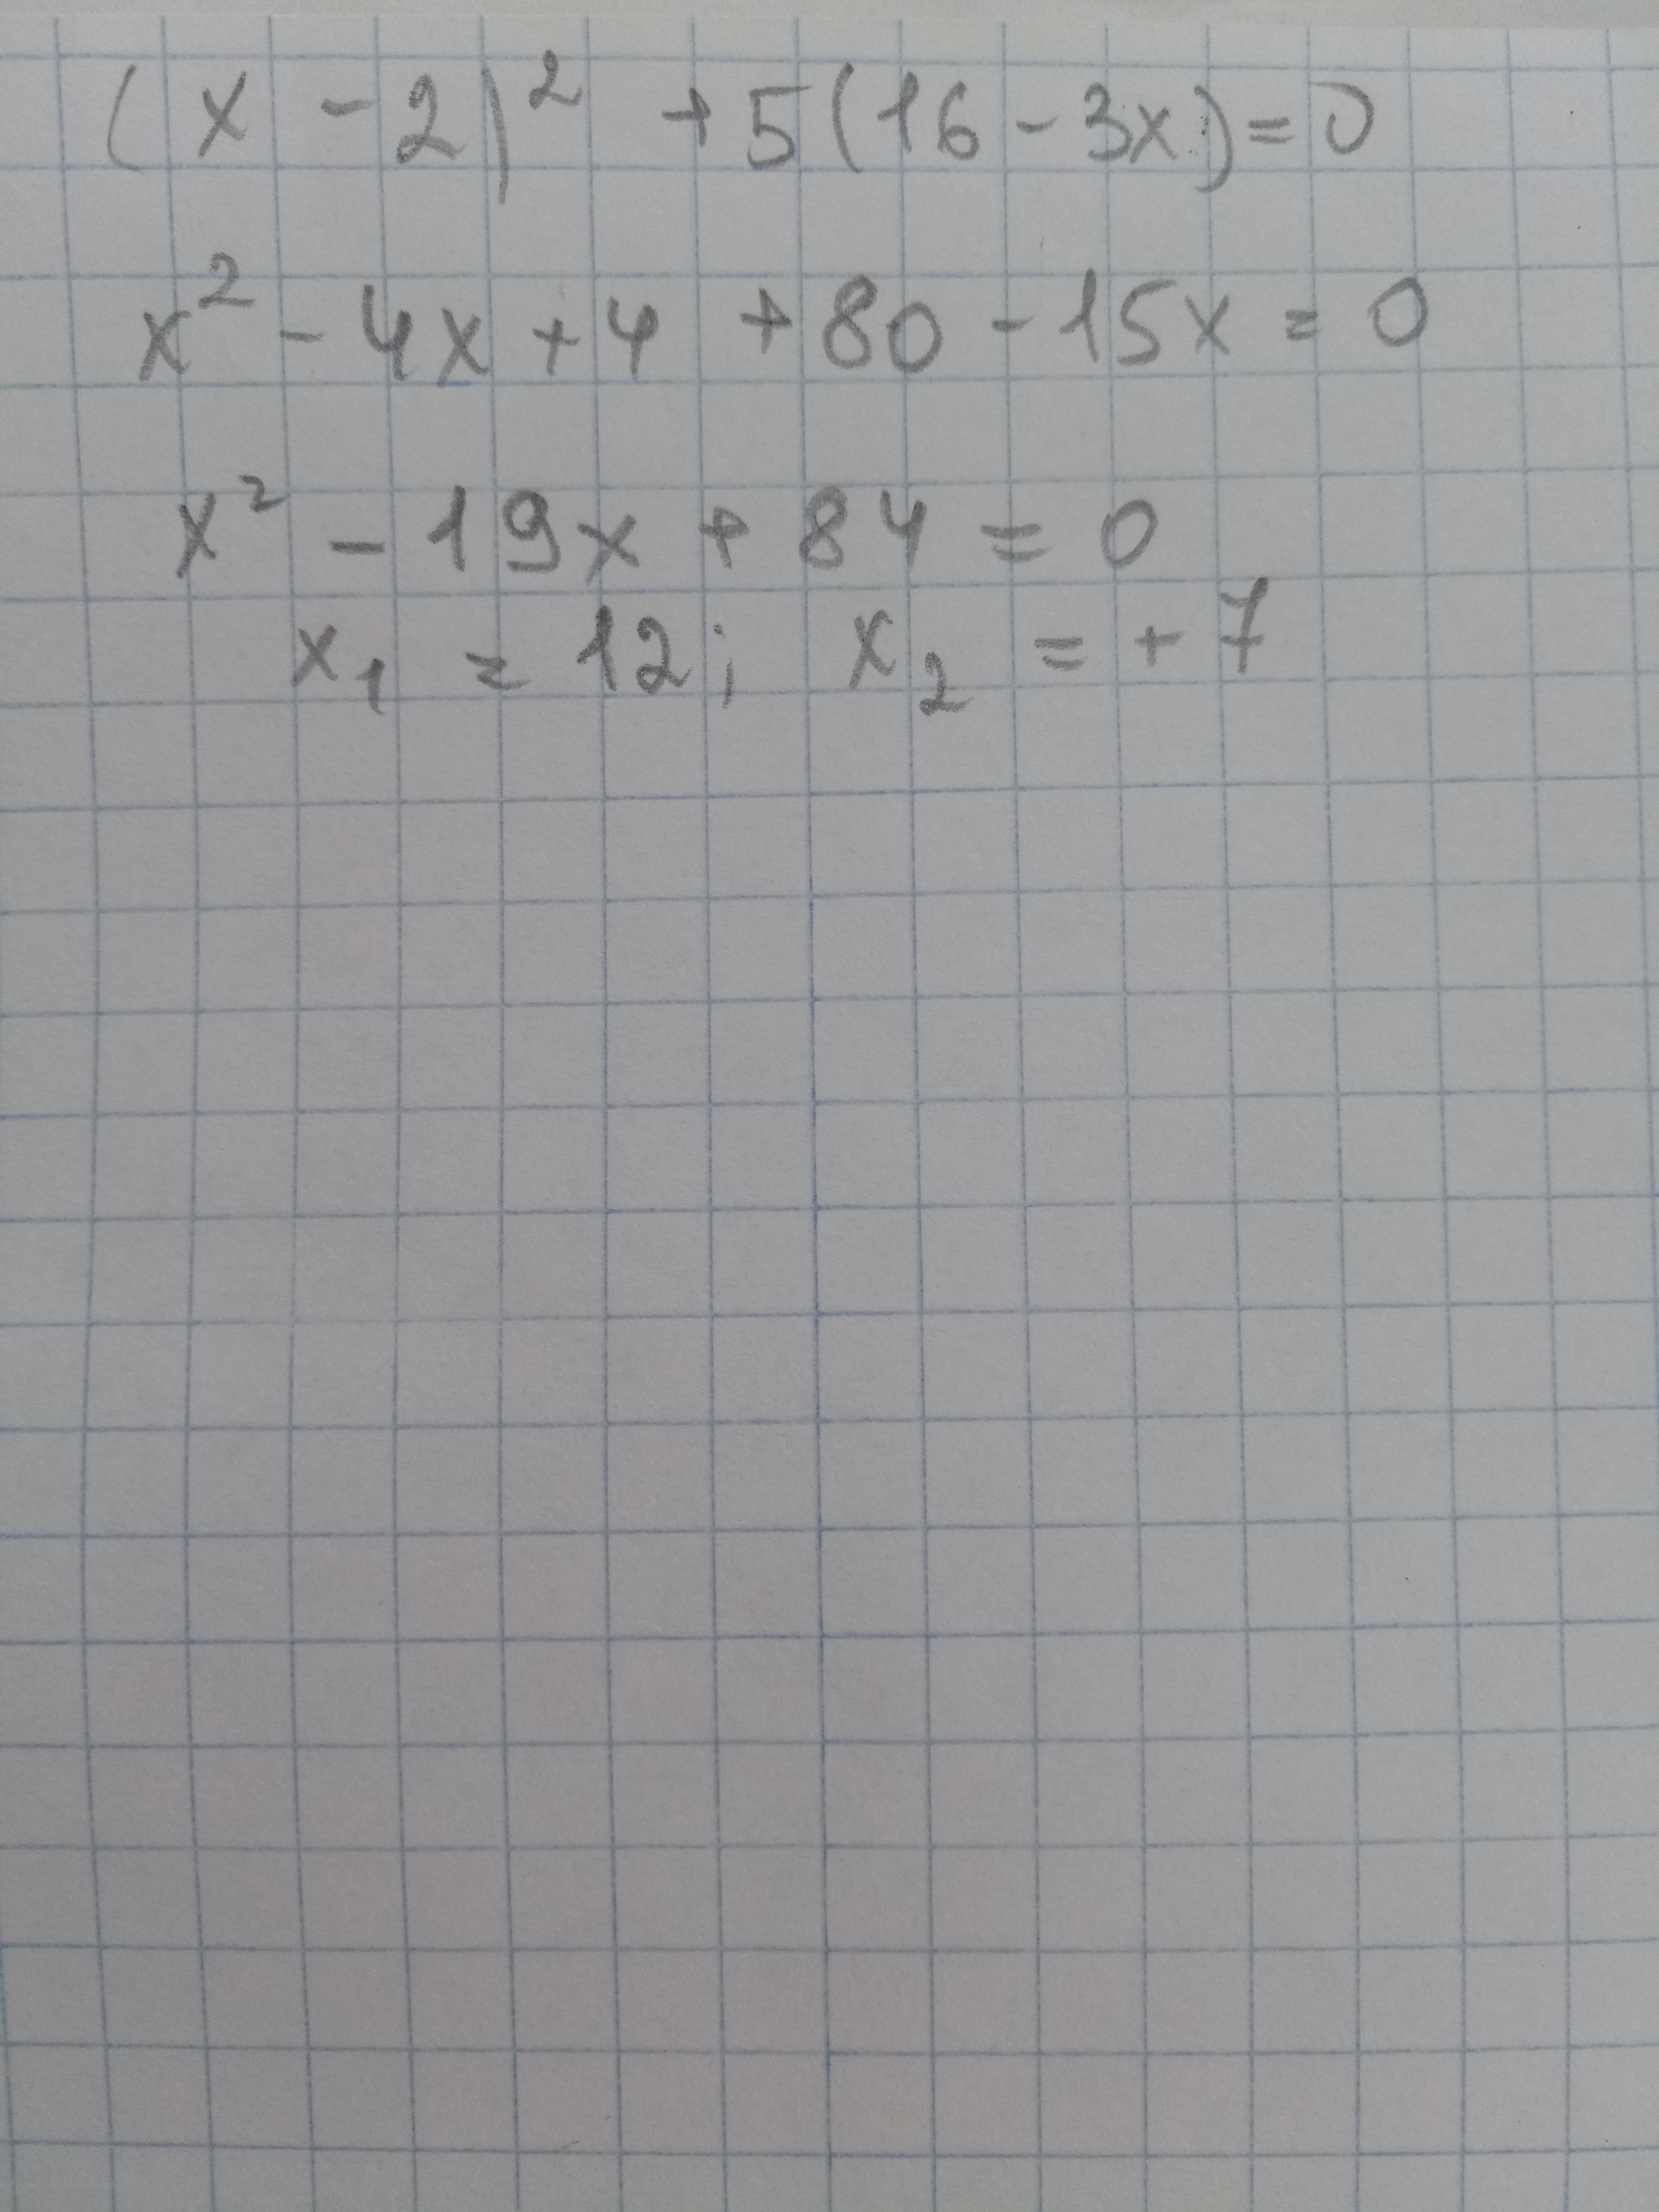 (x - 2)² + 5(16 - 3x) = 0
x² - 4x + 4 + 80 - 15x = 0
x² - 19x + 84 = 0
x₁ = 12; x₂ = +7